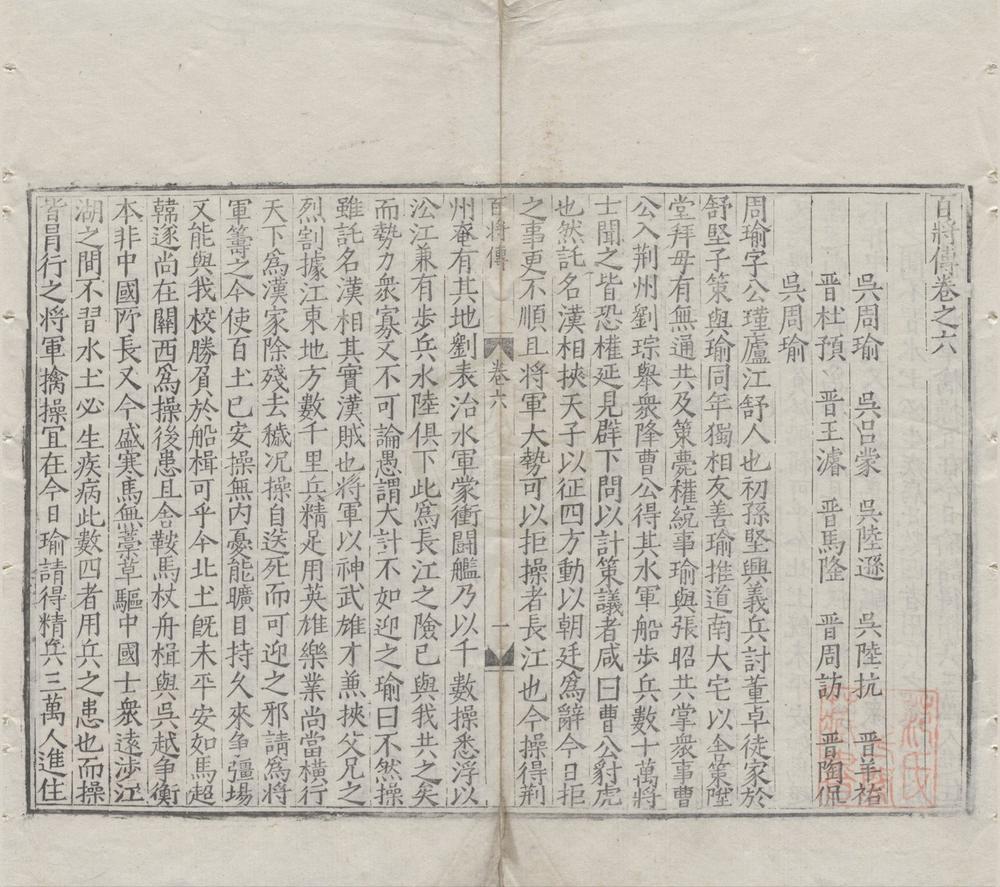 百將傳卷之六
吳周瑜 吳呂蒙 吳陸遜 吳陸抗 晋羊祜
晋杜預 晋王濬 晋馬隆 晋周訪 晋陶侃
吳周瑜
周瑜字公瑾廬江舒人也初孫堅興義兵討董卓徒家於
舒堅子策與瑜同年獨相友善瑜推道南大宅以舍策陞
堂拜母有無通共及策薨權統事瑜與張昭共掌衆事曹
公入荆州劉琮舉衆降曹公得其水軍船步兵數十萬將
士聞之皆恐權延見群下問以計策議者咸曰曹公豺虎
也然託名漢相挾天子以征四方動以朝廷爲辭今日拒
之事更不順且將軍大勢可以拒操者長江也今操得荆
百將傳 卷六 一
州奄有其地劉表治水軍蒙衝闘艦乃以千數操悉浮以
㳂江兼有步兵水陸俱下此爲長江之險已與我共之矣
而勢力衆寡又不可論愚謂大計不如迎之瑜曰不然操
雖託名漢相其實漢賊也將軍以神武雄才兼挾父兄之
烈割據江東地方數千里兵精足用英雄樂業尚當橫行
天下爲漢家除殘去穢况操自送死而可迎之邪請爲將
軍籌之今使百土已安操無内憂能曠日持久來爭彊場
又能與我校勝負於船楫可乎今北土旣未平安如馬超
韓遂尚在關西爲操後患且舍鞍馬杖舟楫與吳越争衡
本非中國所長又今盛寒馬無藁草驅中國士衆遠涉江
湖之間不習水土必生疾病此數四者用兵之患也而操
皆冒行之將軍擒操宜在今日瑜請得精兵三萬人進住